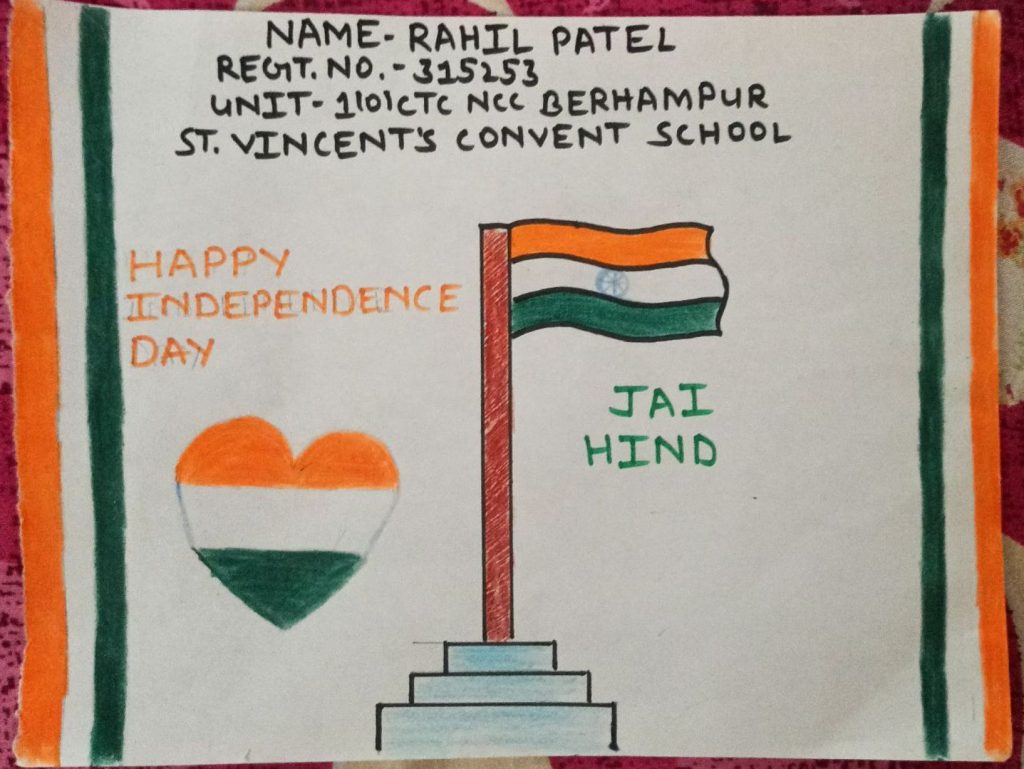 NAME- RAHIL PATEL
REGT. NO. - 315253
UNIT- 1(O)CTC NCC BERHAMPUR
ST. VINCENT'S CONVENT SCHOOL
HAPPY
INDEPENDENCE
DAY
JAI
HIND